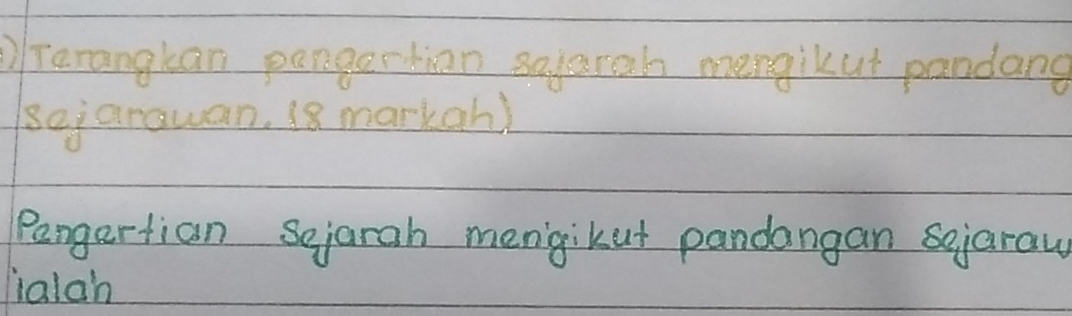 ) Terangkan pengertian sejarah mengikut pandang
sejarawan. (8 markah)
Pengertian sejarah mengikut pandangan sejaraw
ialah